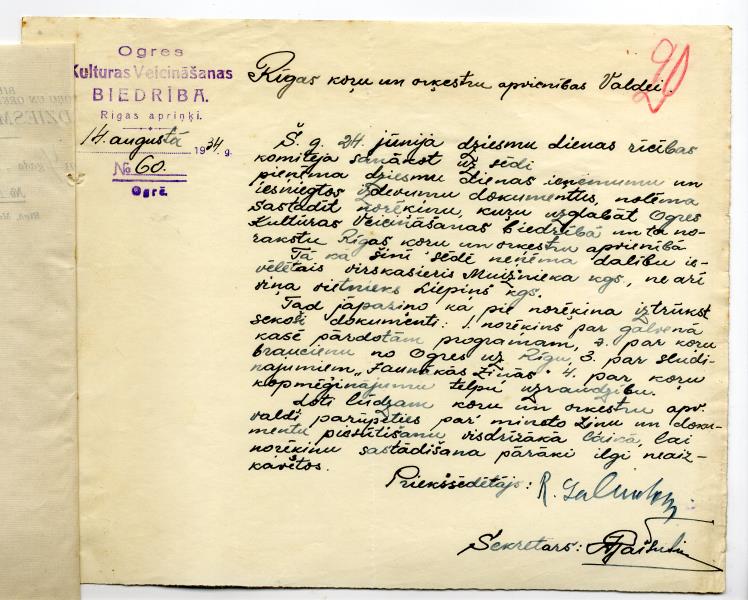 Ogres
Kulturas Veicināšanas
BIEDRĪBA.
Rīgas apriņķī.
14. augustā 1934 g.
No 60.
Ogrē.
20
Rīgas koru un orķestru apvienības Valdei.
Š. g. 24. jūnijā dziesmu dienas rīcības
komiteja sanākot uz sēdi
pieņēma dziesmu dienas ieņēmumu un
iesniegtos izdevumu dokumentus, nolēma
sastādīt norēķinu, kuru uzglabāt Ogres
Kulturas Veicināšanas biedrībā un tā no-
rakstu Rīgas koru un orķestru apvienībā
Tā kā šinī sēdē neņēma dalību iz-
vēlētais virskasieris Muižnieka kgs., ne arī
viņa vietnieks Liepiņš kgs.
Tad jāpaziņo ka pie norēķina iztrūkst
sekoši dokumenti: 1. norēķins par galvenā
kasē pārdotām programām, 2. par koru
braucienu no Ogres uz Rīgu, 3. par sludi-
nājumiem „Jaunākās Ziņās" 4. par koru
kopmēģinājumu telpu uzraudzību.
Ļoti lūdzam koru un orķestru apv.
valdi parūpēties par minēto ziņu un doku-
mentu piesūtīšanu visdrīzākā laikā, lai
norēķinu sastādīšana pārāki ilgi neaiz-
kavētos.
Priekšsēdētājs: R.
Sekretārs: